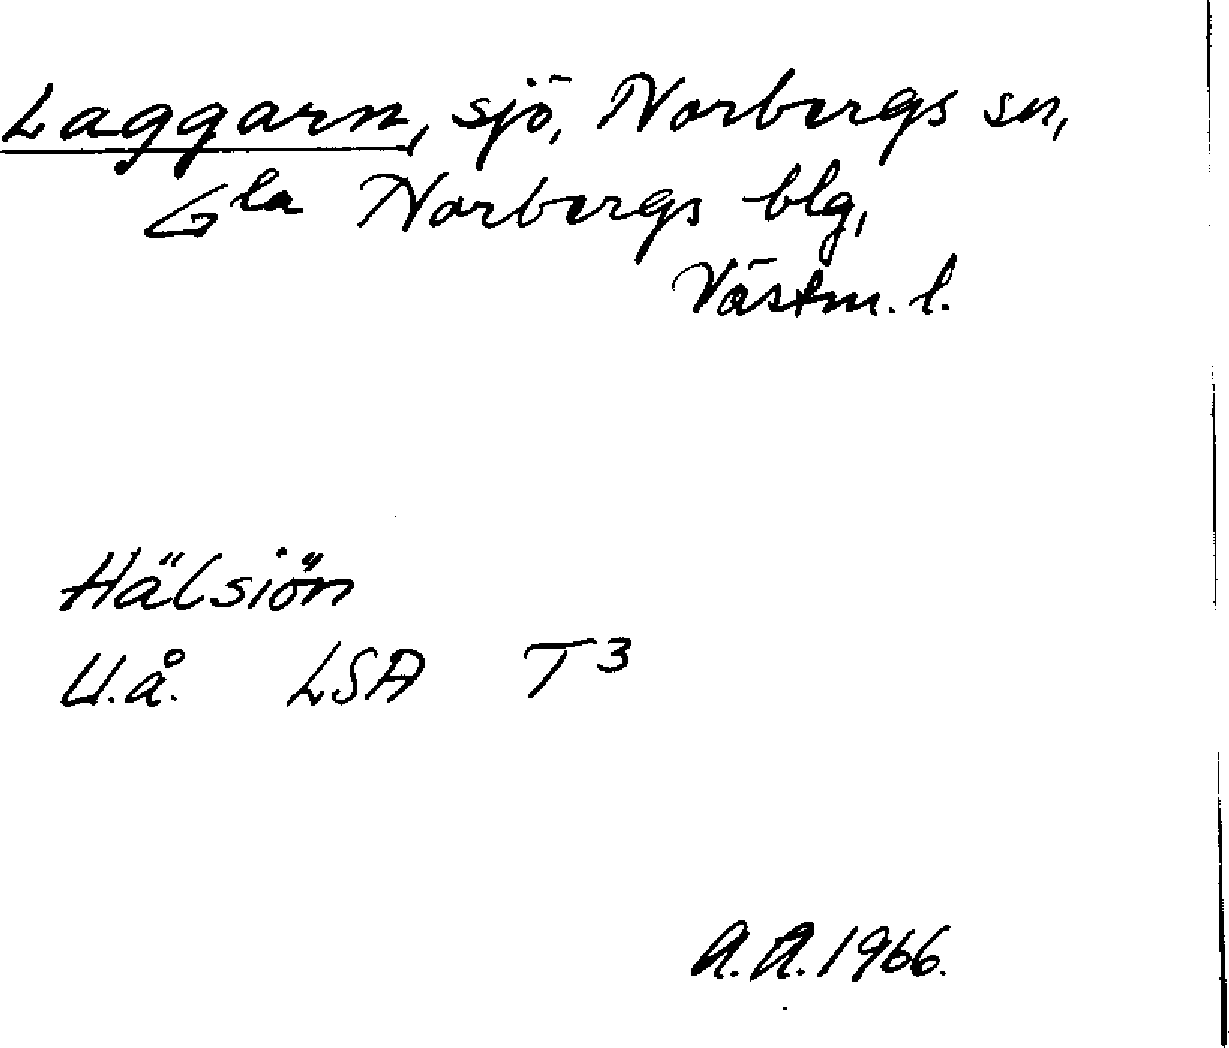 Laggarn, sjö, Norbergs sn,
Gla Norbergs blg,
Västm. l.
Hälsiön
U.å. LSA T3
A.A. 1966.